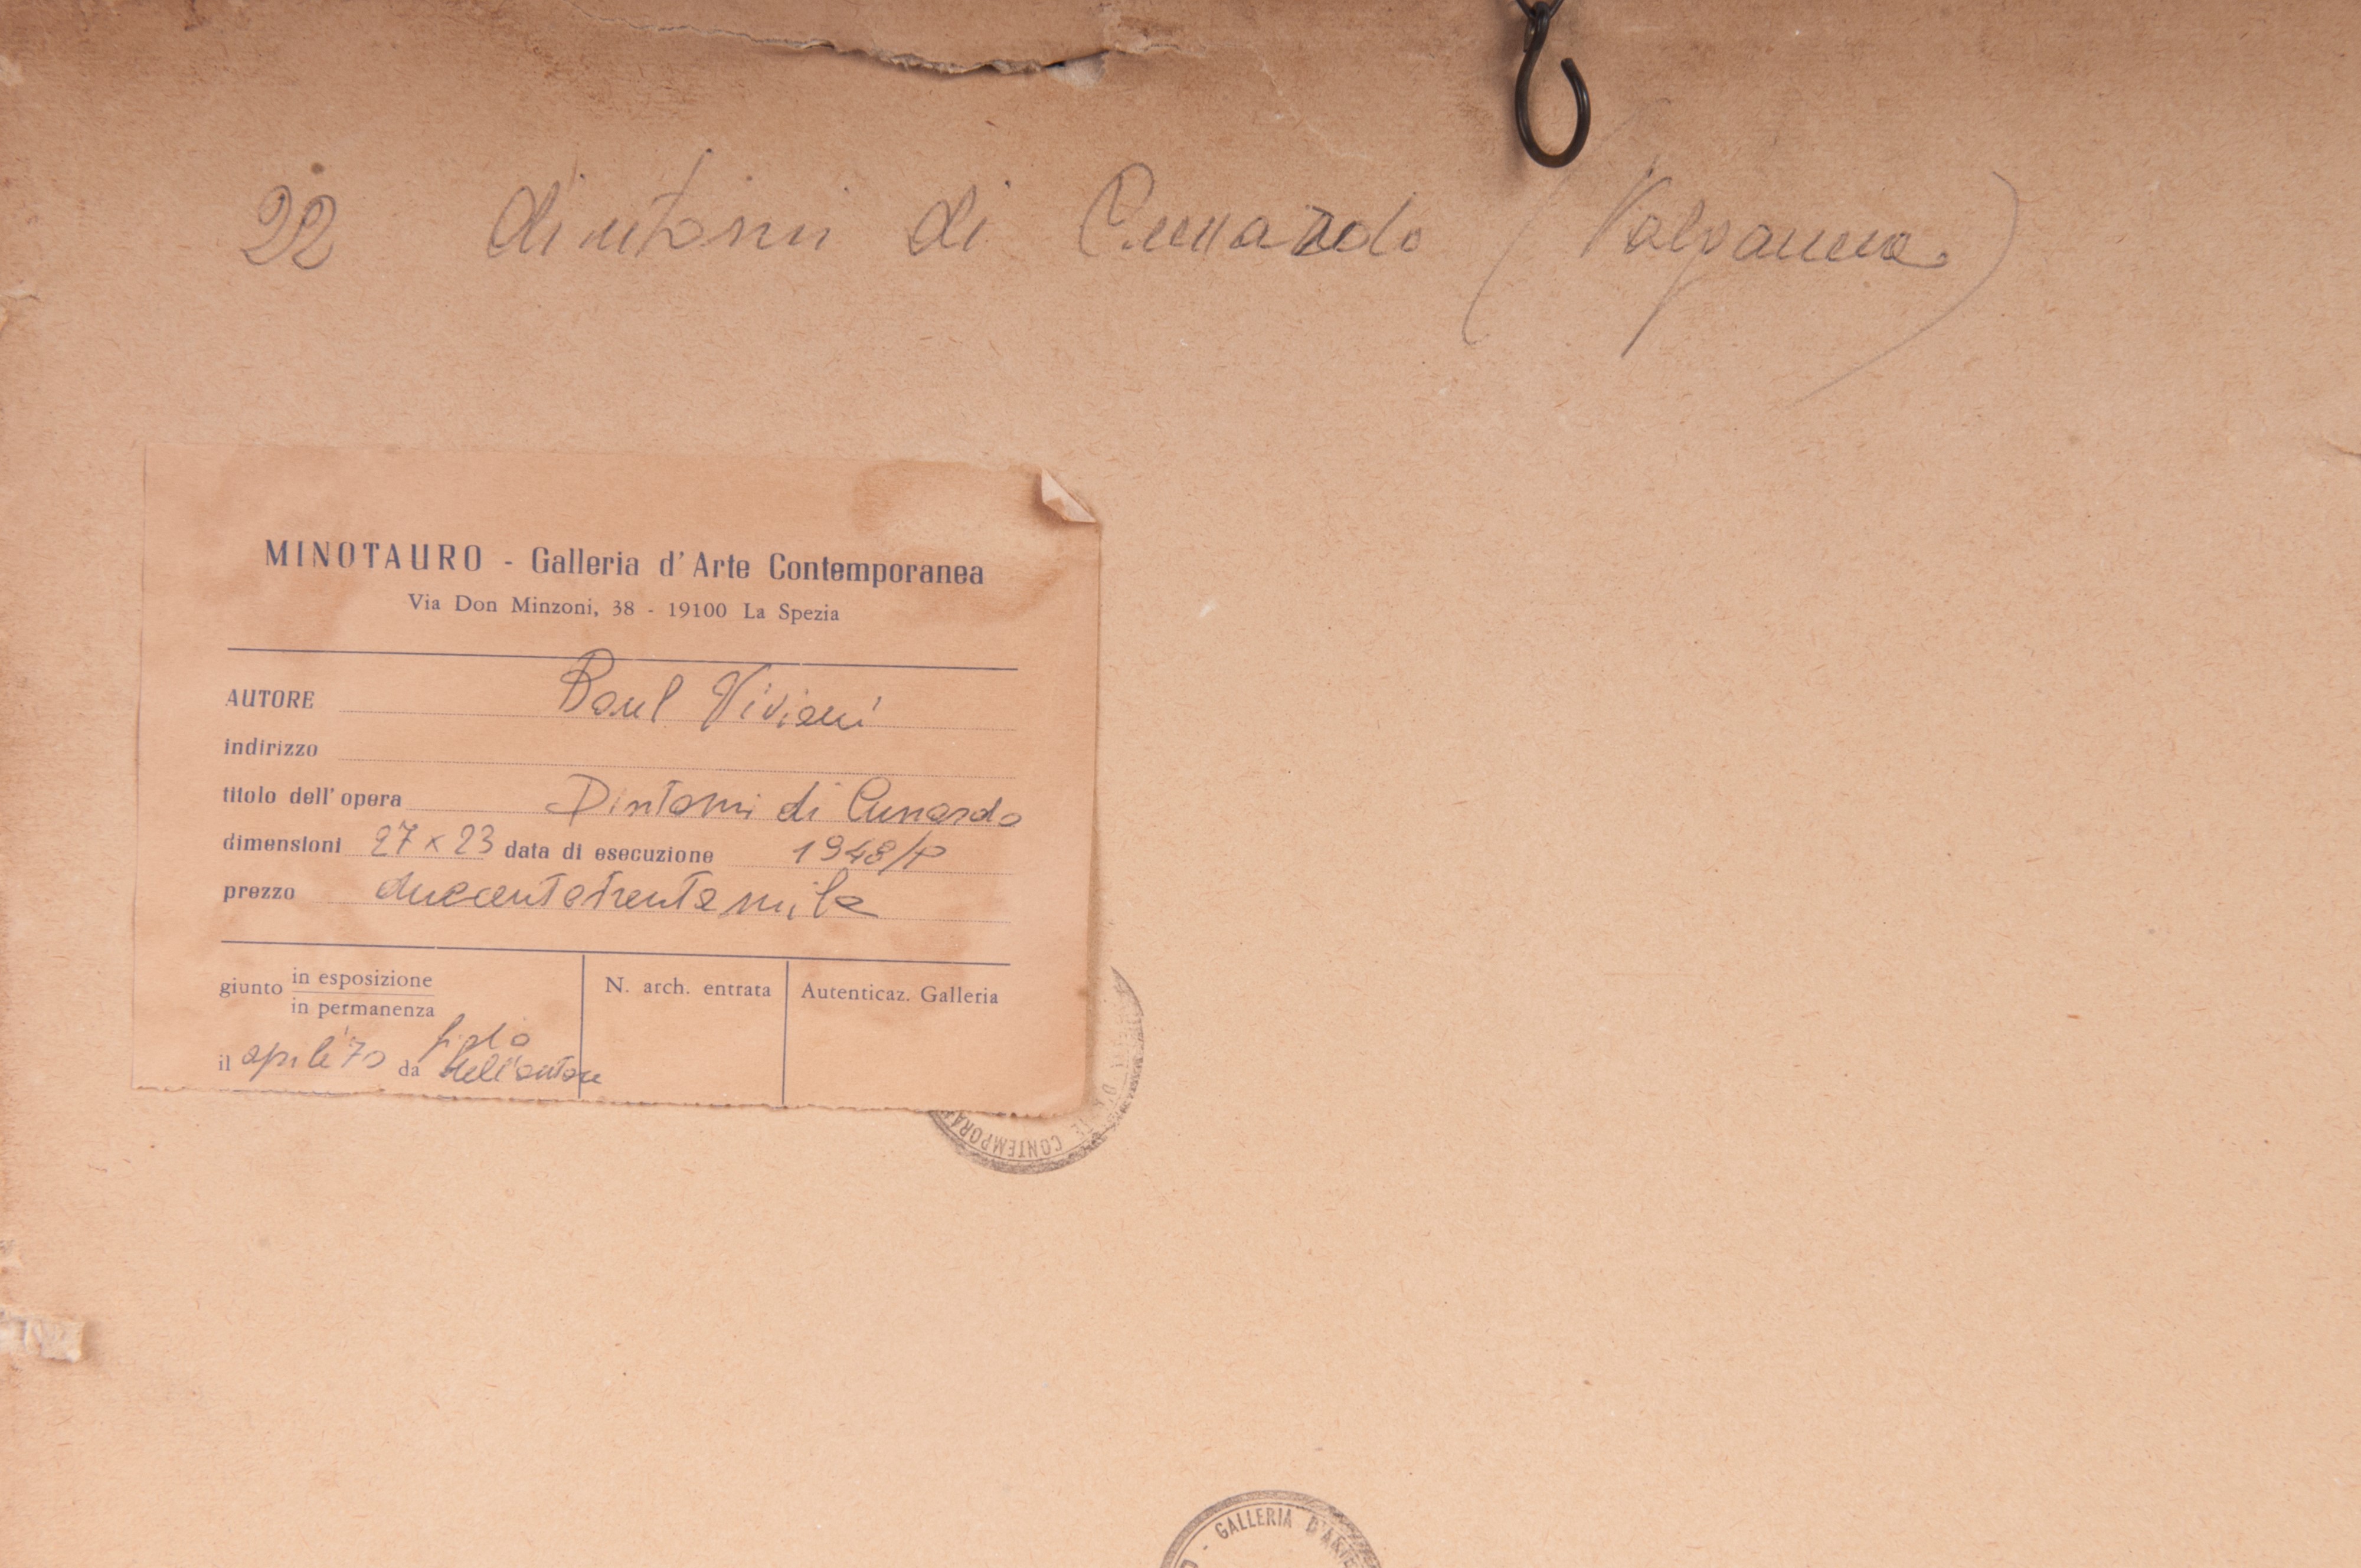 22 dintorni di Cunardo (Valganna)
MINOTAURO - Galleria d'Arte Contemporanea
Via Don Minzoni, 38 - 19100 La Spezia
AUTORE Raul Viviani
indirizzo
titolo dell'opera Dintorni di Cunardo
dimensioni 27 x 23 data di esecuzione
prezzo duecentotrentamila
giunto in esposizione
in permanenza
N. arch. entrata
Autenticaz. Galleria
il aprile '70 da figlio
dell'autore
CONTEMPORA
GALLERIA D'ARTE